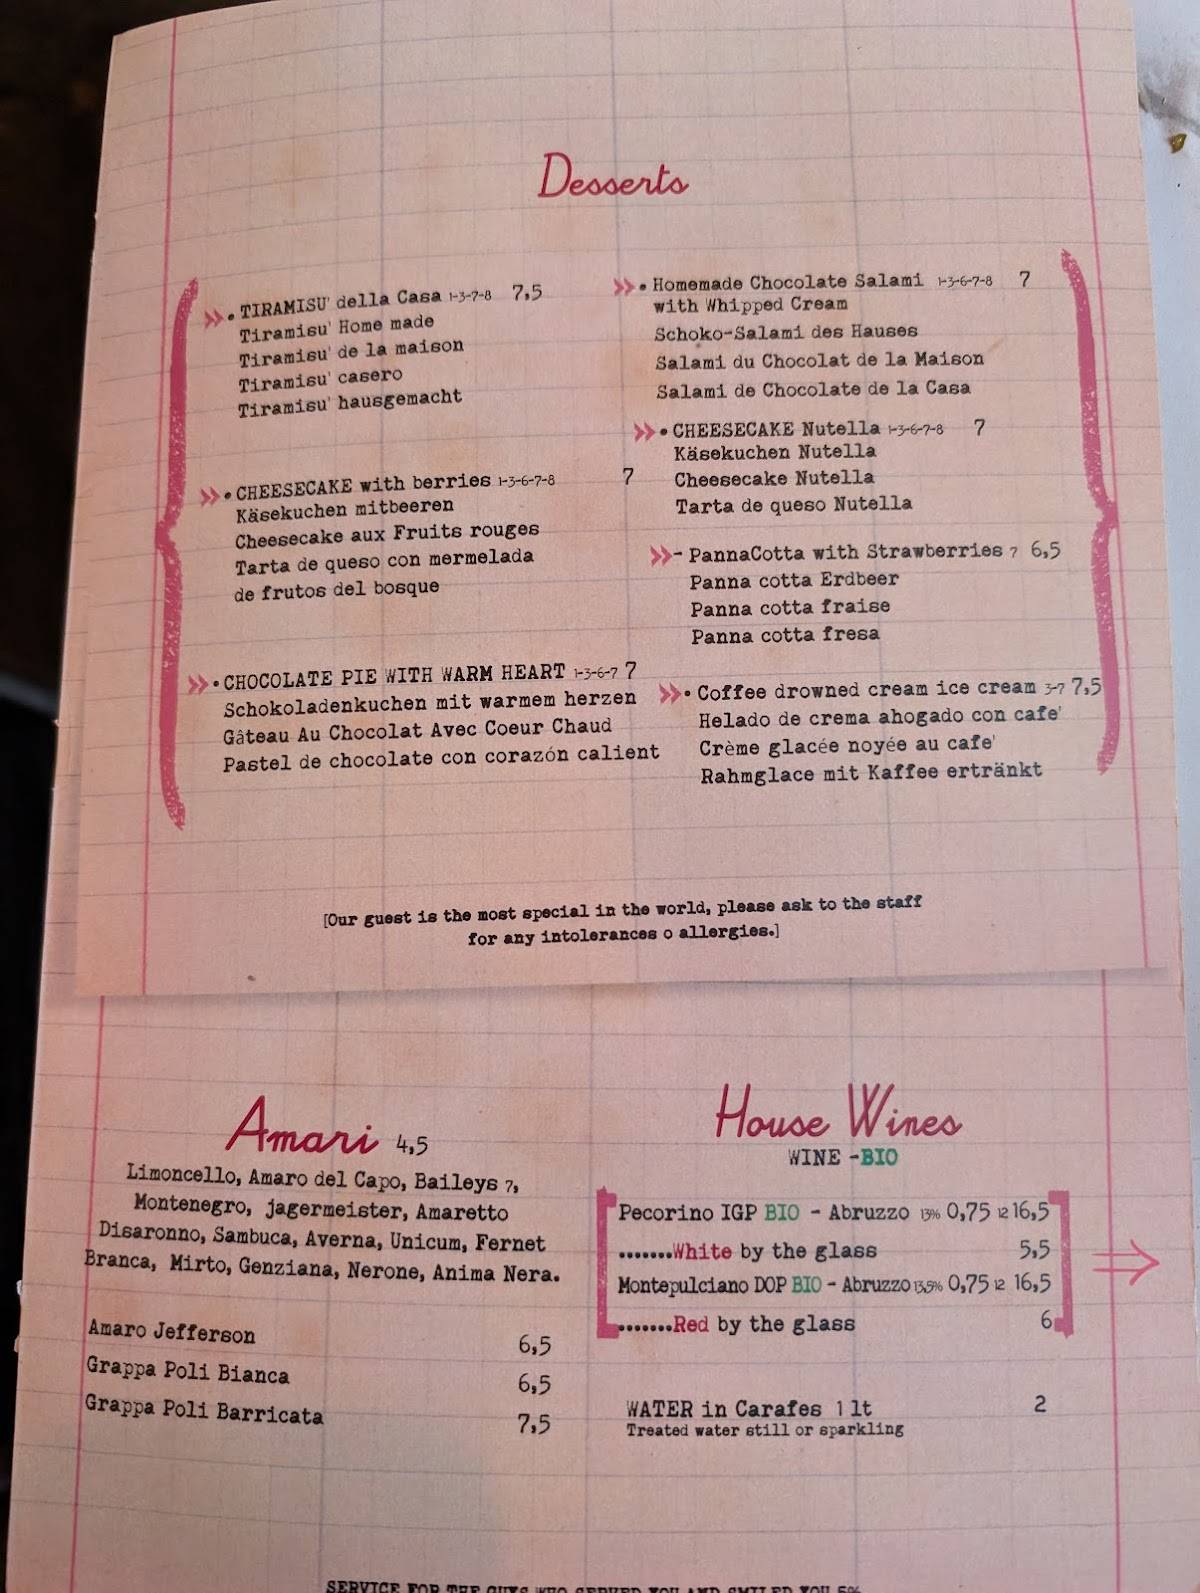 Desserts
TIRAMISU' della Casa 1-3-7-8 7,5
Tiramisu' Home made
Tiramisu' de la maison
Tiramisu' casero
Tiramisu' hausgemacht
CHEESECAKE with berries 1-3-6-7-8 7
Käsekuchen mitbeeren
Cheesecake aux Fruits rouges
Tarta de queso con mermelada
de frutos del bosque
CHOCOLATE PIE WITH WARM HEART 1-3-6-7 7
Schokoladenkuchen mit warmem herzen
Gâteau Au Chocolat Avec Coeur Chaud
Pastel de chocolate con corazón calient
Homemade Chocolate Salami 1-3-6-7-8 7
with Whipped Cream
Schoko-Salami des Hauses
Salami du Chocolat de la Maison
Salami de Chocolate de la Casa
CHEESECAKE Nutella 1-3-6-7-8 7
Käsekuchen Nutella
Cheesecake Nutella
Tarta de queso Nutella
- PannaCotta with Strawberries 7 6,5
Panna cotta Erdbeer
Panna cotta fraise
Panna cotta fresa
Coffee drowned cream ice cream 3-7 7,5
Helado de crema ahogado con cafe'
Crème glacée noyée au cafe'
Rahmglace mit Kaffee ertränkt
[Our guest is the most special in the world, please ask to the staff
for any intolerances o allergies.]
Amari 4,5
Limoncello, Amaro del Capo, Baileys 7,
Montenegro, jagermeister, Amaretto
Disaronno, Sambuca, Averna, Unicum, Fernet
Branca, Mirto, Genziana, Nerone, Anima Nera.
Amaro Jefferson 6,5
Grappa Poli Bianca 6,5
Grappa Poli Barricata 7,5
House Wines
WINE -BIO
Pecorino IGP BIO - Abruzzo 13% 0,75 12 16,5
.......White by the glass 5,5
Montepulciano DOP BIO - Abruzzo 13,5% 0,75 12 16,5
.......Red by the glass 6
WATER in Carafes 1 lt 2
Treated water still or sparkling
SERVICE FOR THE GUYS WHO SERVED YOU AND SMILED YOU 5%